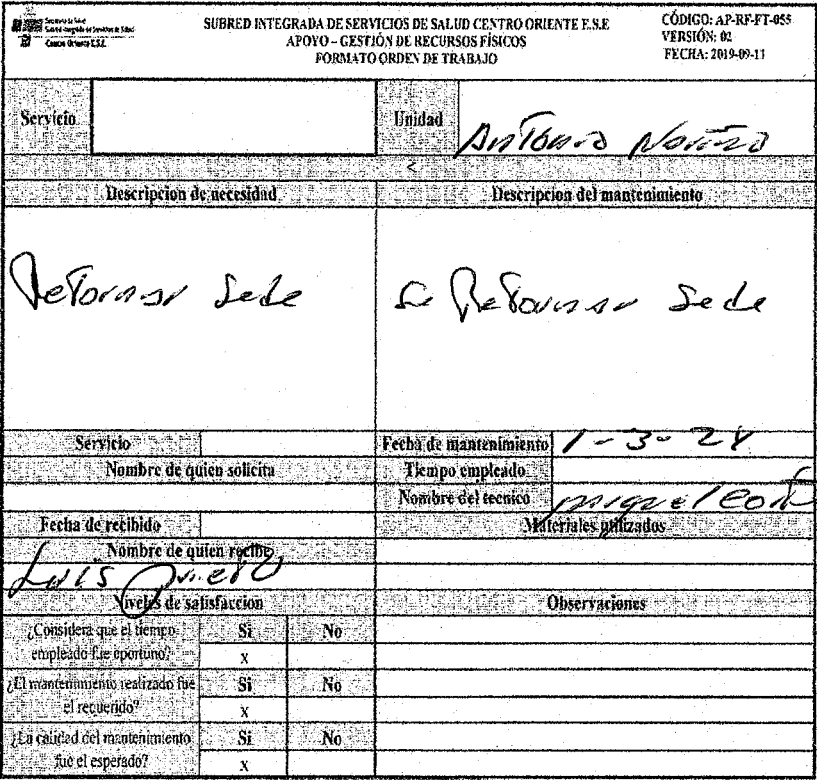 Secretaría de Salud
Subred Integrada de Servicios de Salud
Centro Oriente E.S.E.
SUBRED INTEGRADA DE SERVICIOS DE SALUD CENTRO ORIENTE E.S.E
APOYO – GESTIÓN DE RECURSOS FÍSICOS
FORMATO ORDEN DE TRABAJO
CÓDIGO: AP-RF-FT-055
VERSIÓN: 02
FECHA: 2019-09-11
Servicio
Unidad
Antonio Nariño
Descripcion de necesidad
Descripcion del mantenimiento
Sede
Se Sede
Servicio
Fecha de mantenimiento 1-3-24
Nombre de quien solicita
Tiempo empleado
Nombre del tecnico miguel
Fecha de recibido
Materiales utilizados
Nombre de quien recibe
Luis
Niveles de satisfaccion
Observaciones
¿Considera que el tiempo empleado fue oportuno?
Si No
x
¿El mantenimiento realizado fue el requerido?
Si No
x
¿La calidad del mantenimiento fue el esperado?
Si No
x